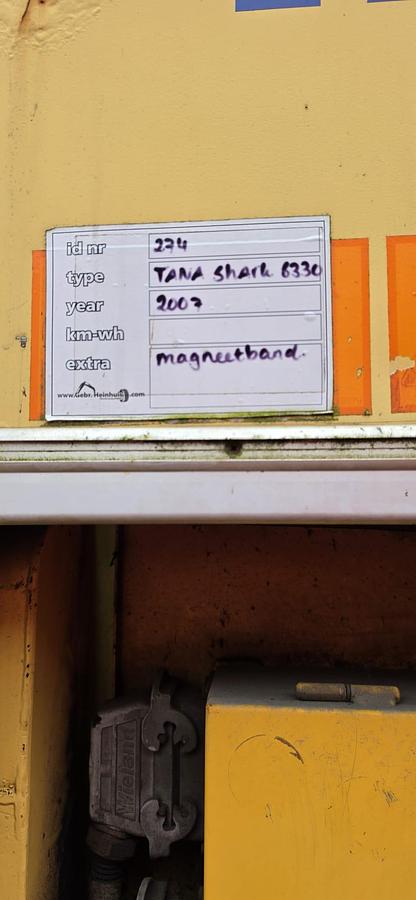 id nr 274
type TANA Shark 6330
year 2007
km-wh
extra magneetband.
www.Gebr.Heinhuis.com
Wieland